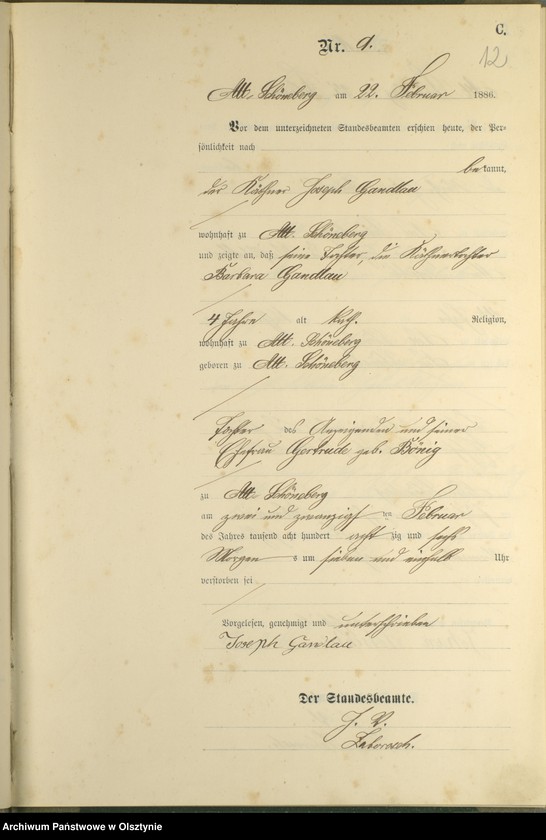 C.
12
Nr. 9.
Alt. Schöneberg am 22. Februar 1886.
Vor dem unterzeichneten Standesbeamten erschien heute, der Per-
sönlichkeit nach
bekannt,
der Käthner Joseph Gandlau
wohnhaft zu Alt. Schöneberg
und zeigte an, daß seine Tochter, die Käthnertochter
Barbara Gandlau
4 Jahre alt kath. Religion,
wohnhaft zu Alt. Schöneberg
geboren zu Alt. Schöneberg
Tochter des Anzeigenden und seiner
Ehefrau Gertrude geb. Bönig
zu Alt. Schöneberg
am zwei und zwanzigsten Februar
des Jahres tausend acht hundert acht zig und sechs
Morgens um sieben und einhalb Uhr
verstorben sei
Vorgelesen, genehmigt und unterschrieben
Joseph Gandlau
Der Standesbeamte.
J. V.
Archiwum Państwowe w Olsztynie